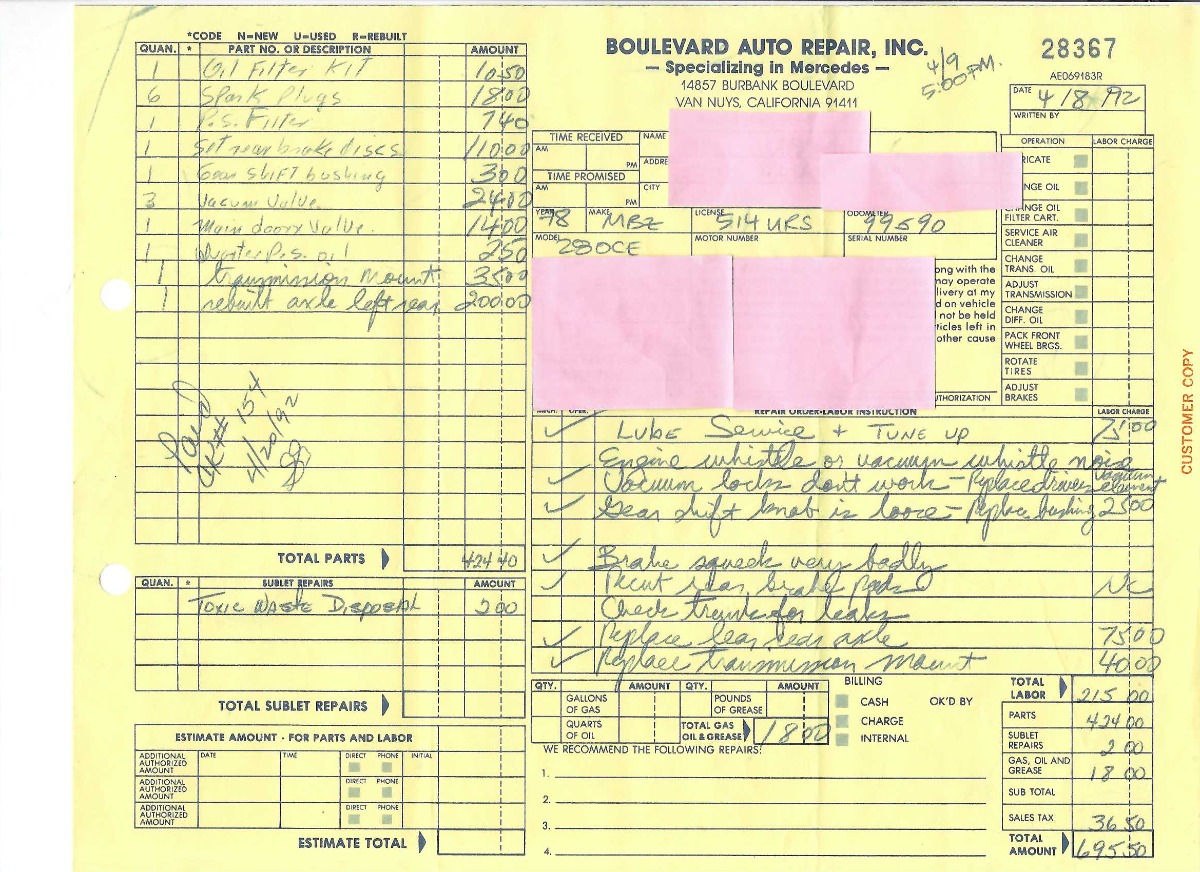 *CODE N=NEW U=USED R=REBUILT
QUAN. * PART NO. OR DESCRIPTION AMOUNT
1 Oil Filter Kit 10.50
6 Spark Plugs 18.00
1 P.S. Filter 7.40
1 Set rear brake discs 110.00
1 Gear shift bushing 3.00
3 Vacum Valve 24.00
1 Main doorx Valve. 14.00
1 P.S. oil 2.50
1 transmission mount 35.00
1 rebuilt axle left rear 200.00
Paid
CK# 154
4/20/92
TOTAL PARTS 424.40
QUAN. * SUBLET REPAIRS AMOUNT
Toxic Waste Disposal 2.00
TOTAL SUBLET REPAIRS
ESTIMATE AMOUNT - FOR PARTS AND LABOR
ADDITIONAL AUTHORIZED AMOUNT DATE TIME DIRECT PHONE INITIAL
ADDITIONAL AUTHORIZED AMOUNT DIRECT PHONE
ADDITIONAL AUTHORIZED AMOUNT DIRECT PHONE
ESTIMATE TOTAL
BOULEVARD AUTO REPAIR, INC.
— Specializing in Mercedes —
14857 BURBANK BOULEVARD
VAN NUYS, CALIFORNIA 91411
4/9
5:00 P.M.
28367
AE069183R
DATE 4/8/92
WRITTEN BY
TIME RECEIVED NAME
AM PM ADDRE
TIME PROMISED
AM PM CITY
YEAR 78 MAKE MBZ LICENSE 514 URS ODOMETER 99590
MODEL 280CE MOTOR NUMBER SERIAL NUMBER
ong with the
may operate
livery at my
d on vehicle
not be held
ticles left in
other cause
UTHORIZATION
OPERATION LABOR CHARGE
RICATE
NGE OIL
NGE OIL FILTER CART.
SERVICE AIR CLEANER
CHANGE TRANS. OIL
ADJUST TRANSMISSION
CHANGE DIFF. OIL
PACK FRONT WHEEL BRGS.
ROTATE TIRES
ADJUST BRAKES
MECH. OPER. REPAIR ORDER-LABOR INSTRUCTION LABOR CHARGE
Lube Service + Tune up 75.00
Engine whistle or vacuum whistle noise
Vacuum locks don't work - Replace drivers vacuum element
Gear shift knob is loose - Replace bushing 25.00
Brake squeek very badly
rear brake pads NC
Check trunk for leaks
Replace rear axle 75.00
Replace transmission mount 40.00
QTY. AMOUNT QTY. AMOUNT
GALLONS OF GAS POUNDS OF GREASE
QUARTS OF OIL TOTAL GAS OIL & GREASE 18.00
BILLING
CASH OK'D BY
CHARGE
INTERNAL
WE RECOMMEND THE FOLLOWING REPAIRS:
1.
2.
3.
4.
TOTAL LABOR 215.00
PARTS 424.00
SUBLET REPAIRS 2.00
GAS, OIL AND GREASE 18.00
SUB TOTAL
SALES TAX 36.50
TOTAL AMOUNT 695.50
CUSTOMER COPY